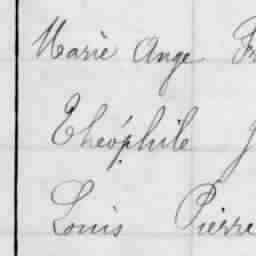 Marie Ange
Théophile
Louis Pierre